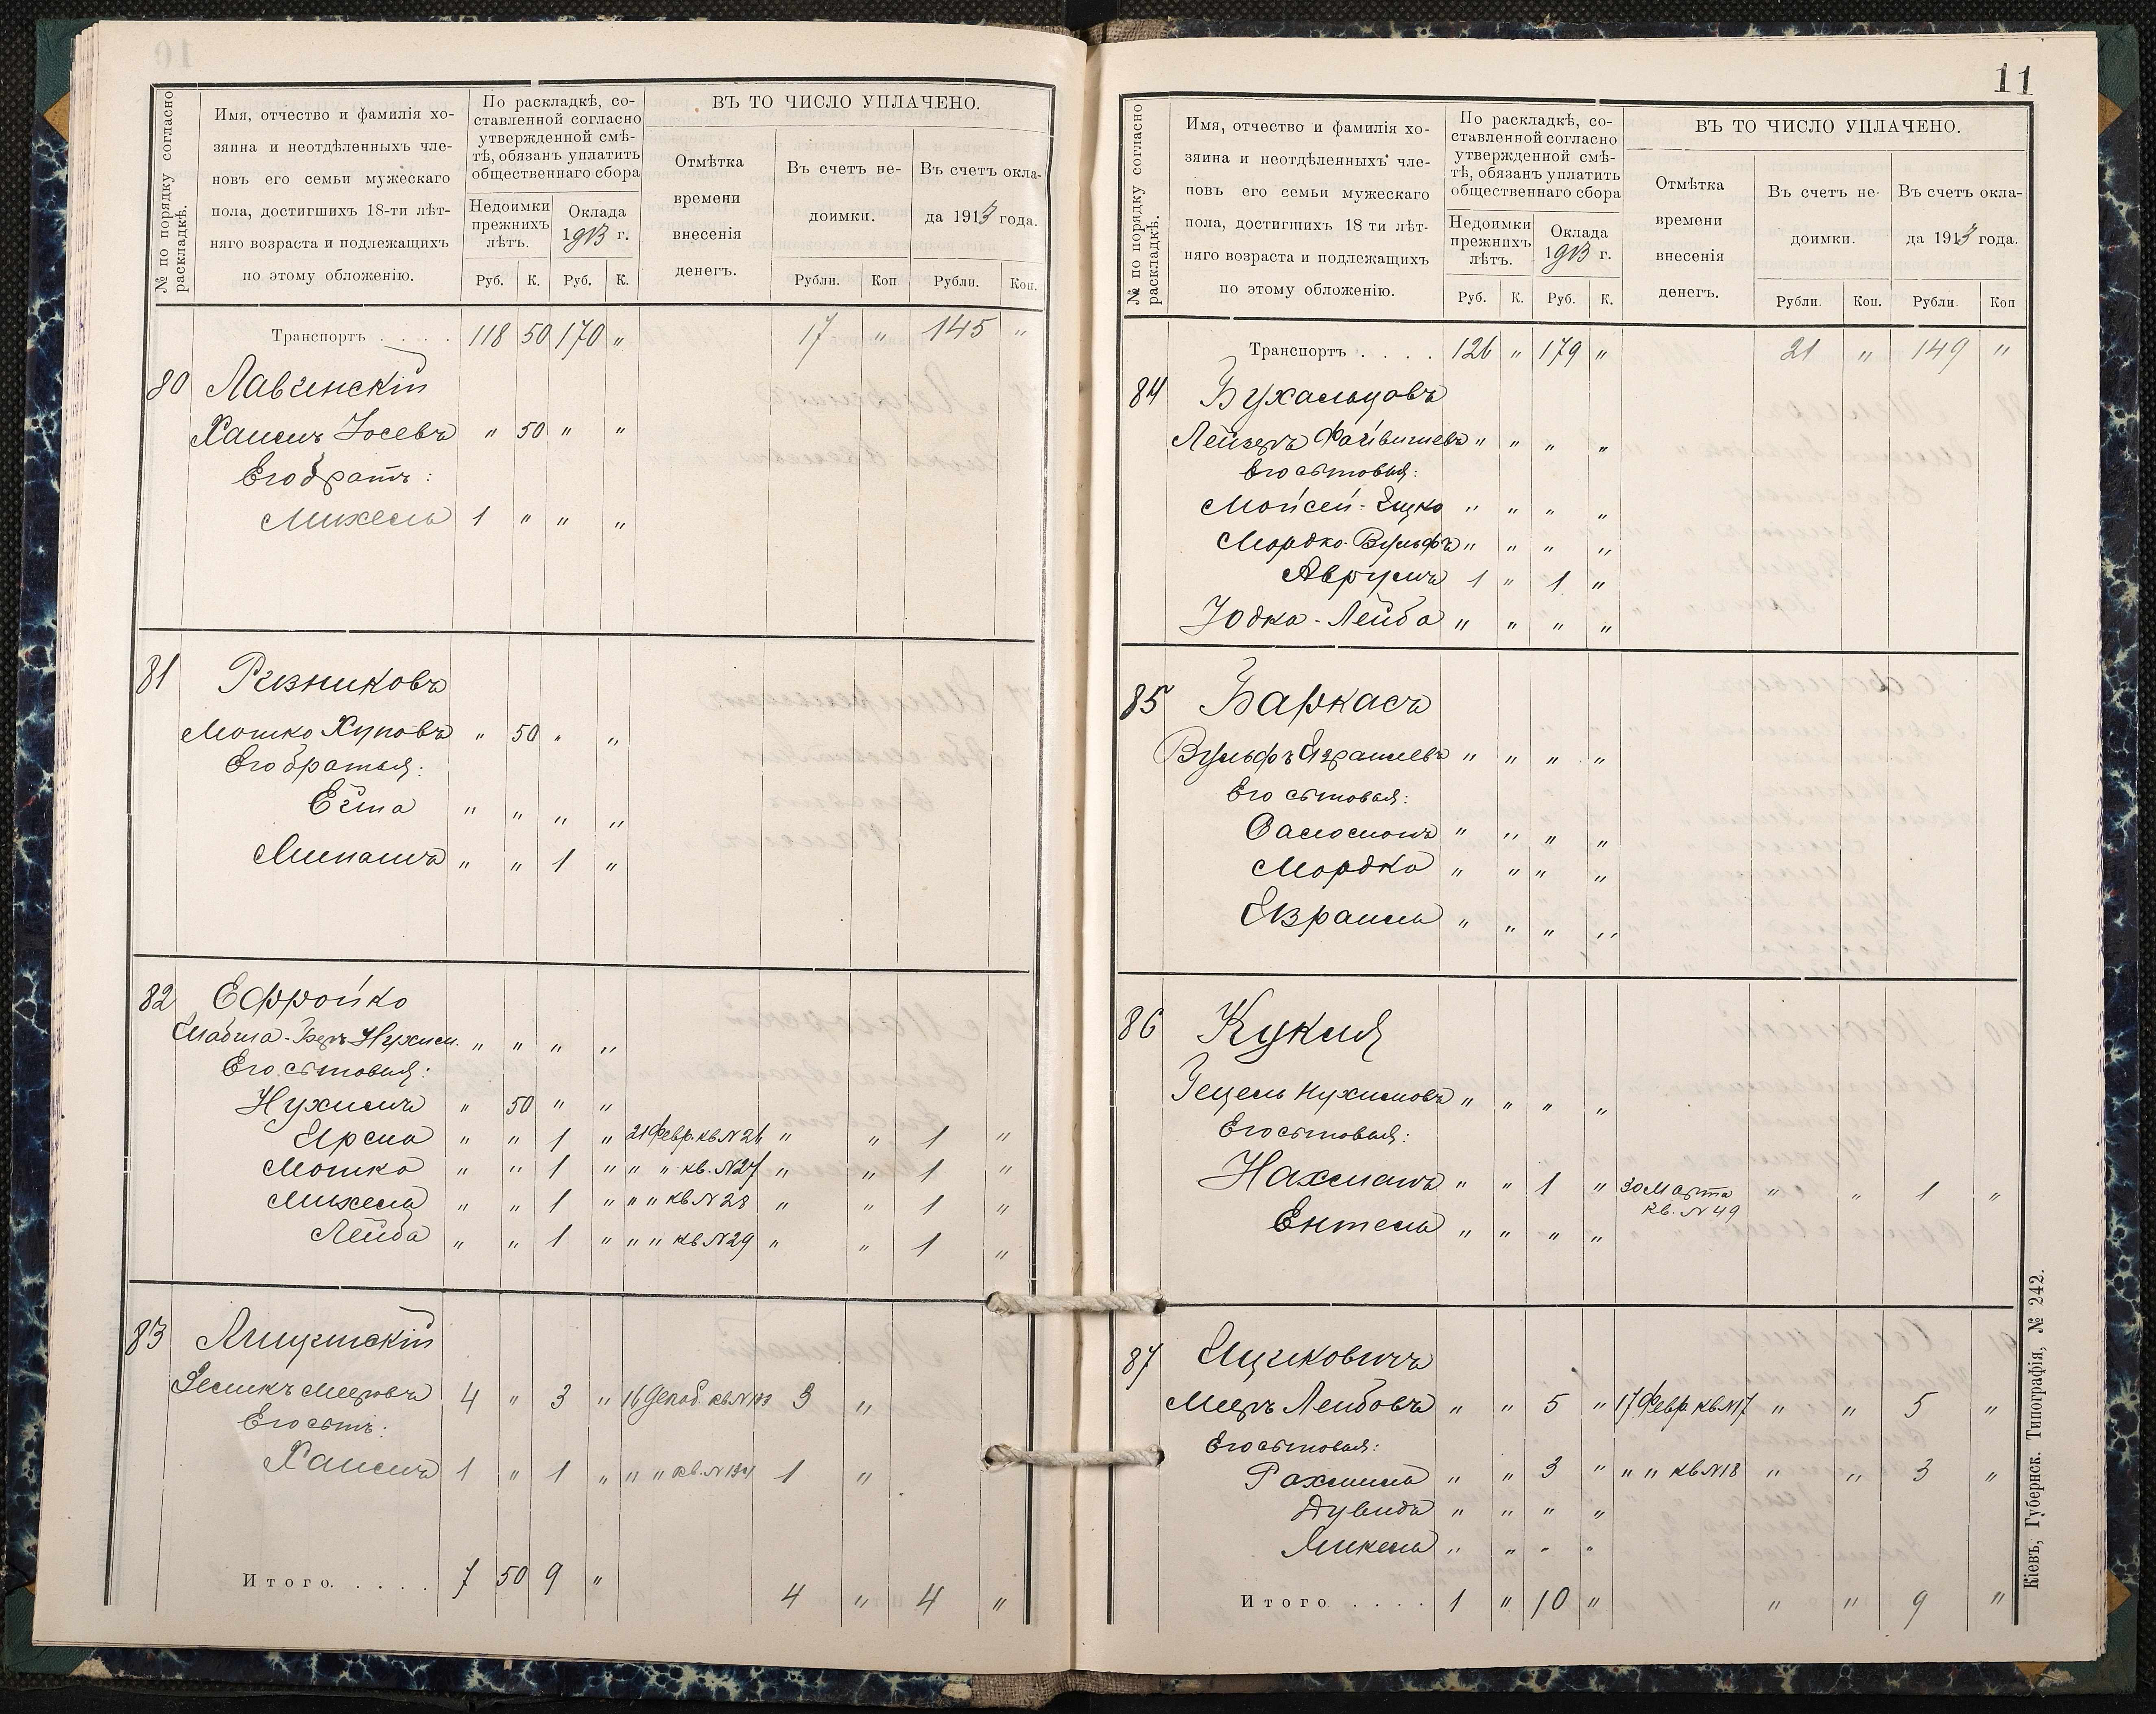 № по порядку согласно раскладкѣ.
Имя, отчество и фамилія хо-
зяина и неотдѣленныхъ чле-
новъ его семьи мужескаго
пола, достигшихъ 18-ти лѣт-
няго возраста и подлежащихъ
по этому обложенію.
По раскладкѣ, со-
ставленной согласно
утвержденной смѣ-
тѣ, обязанъ уплатить
общественнаго сбора
Недоимки прежнихъ лѣтъ.
Оклада 1913 г.
Руб. К. Руб. К.
ВЪ ТО ЧИСЛО УПЛАЧЕНО.
Отмѣтка времени внесенія денегъ.
Въ счетъ не-доимки.
Въ счетъ окла-да 1913 года.
Рубли. Коп. Рубли. Коп.
Транспортъ . . . . 118 50 170 " 17 " 145 "
80 Лавчинскій
Хаимъ Іосевъ " 50 " "
Его братъ:
Михель 1 " " "
81 Резниковъ
Мошко Хуновъ " 50 " "
Его братья:
" " " "
" " 1 "
82 Ефройко
Шабша-Беръ Нухим. " " " "
Его сыновья:
Нухимъ " 50 " "
Ирша " " 1 " 21 Февр. кв. N 26 " " 1 "
Мошко " " 1 " " " кв. N 27 " " 1 "
Михель " " 1 " " " кв N 28 " " 1 "
Лейба " " 1 " " " кв N 29 " " 1 "
83
Зеликъ Мееровъ 4 " 3 " 16 Декаб. кв N 133 3 "
Его сынъ:
Хаимъ 1 " 1 " " " кв. N 134 1 "
Итого. . . . . 7 50 9 " 4 " 4 "
11
№ по порядку согласно раскладкѣ.
Имя, отчество и фамилія хо-
зяина и неотдѣленныхъ чле-
новъ его семьи мужескаго
пола, достигшихъ 18 ти лѣт-
няго возраста и подлежащихъ
по этому обложенію.
По раскладкѣ, со-
ставленной согласно
утвержденной смѣ-
тѣ, обязанъ уплатить
общественнаго сбора
Недоимки прежнихъ лѣтъ.
Оклада 1913 г.
Руб. К. Руб. К.
ВЪ ТО ЧИСЛО УПЛАЧЕНО.
Отмѣтка времени внесенія денегъ.
Въ счетъ не-доимки.
Въ счетъ окла-да 1913 года.
Рубли. Коп. Рубли. Коп
Транспортъ . . . . 126 " 179 " 21 " 149 "
84 Бухальцовъ
Лейзеръ Файвишевъ " " " "
Его сыновья:
Мойсей-Ицко " " " "
Мордко-Вульфъ " " " "
Аврумъ 1 " 1 "
Іодка-Лейба " " " "
85 Баркасъ
Вульфъ Израилевъ " " " "
Его сыновья:
Соломонъ " " " "
Мордко " " " "
Израиль " " " "
86 Кукля
Гецель Нухимовъ " " " "
Его сыновья:
Нахманъ " " 1 " 30 Марта кв. N 49 " " 1 "
Ентель " " " "
87 Ицковичъ
Мееръ Лейбовъ " " 5 " 17 Февр кв N 17 " " 5 "
Его сыновья:
Рахмиль " " 3 " " " кв N 18 " " 3 "
Дувидъ " " " "
Микель " " " "
Итого . . . . 1 " 10 " " " 9 "
Кіевъ, Губернск. Типографія, № 242.